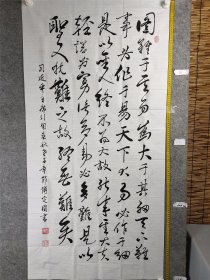 圖難于其易為大于其細天下難
事必作于易天下大事必作于細
是以聖人終不為大故能成其大夫
輕諾必寡信多易必多難是以
聖人猶難之故終無難矣